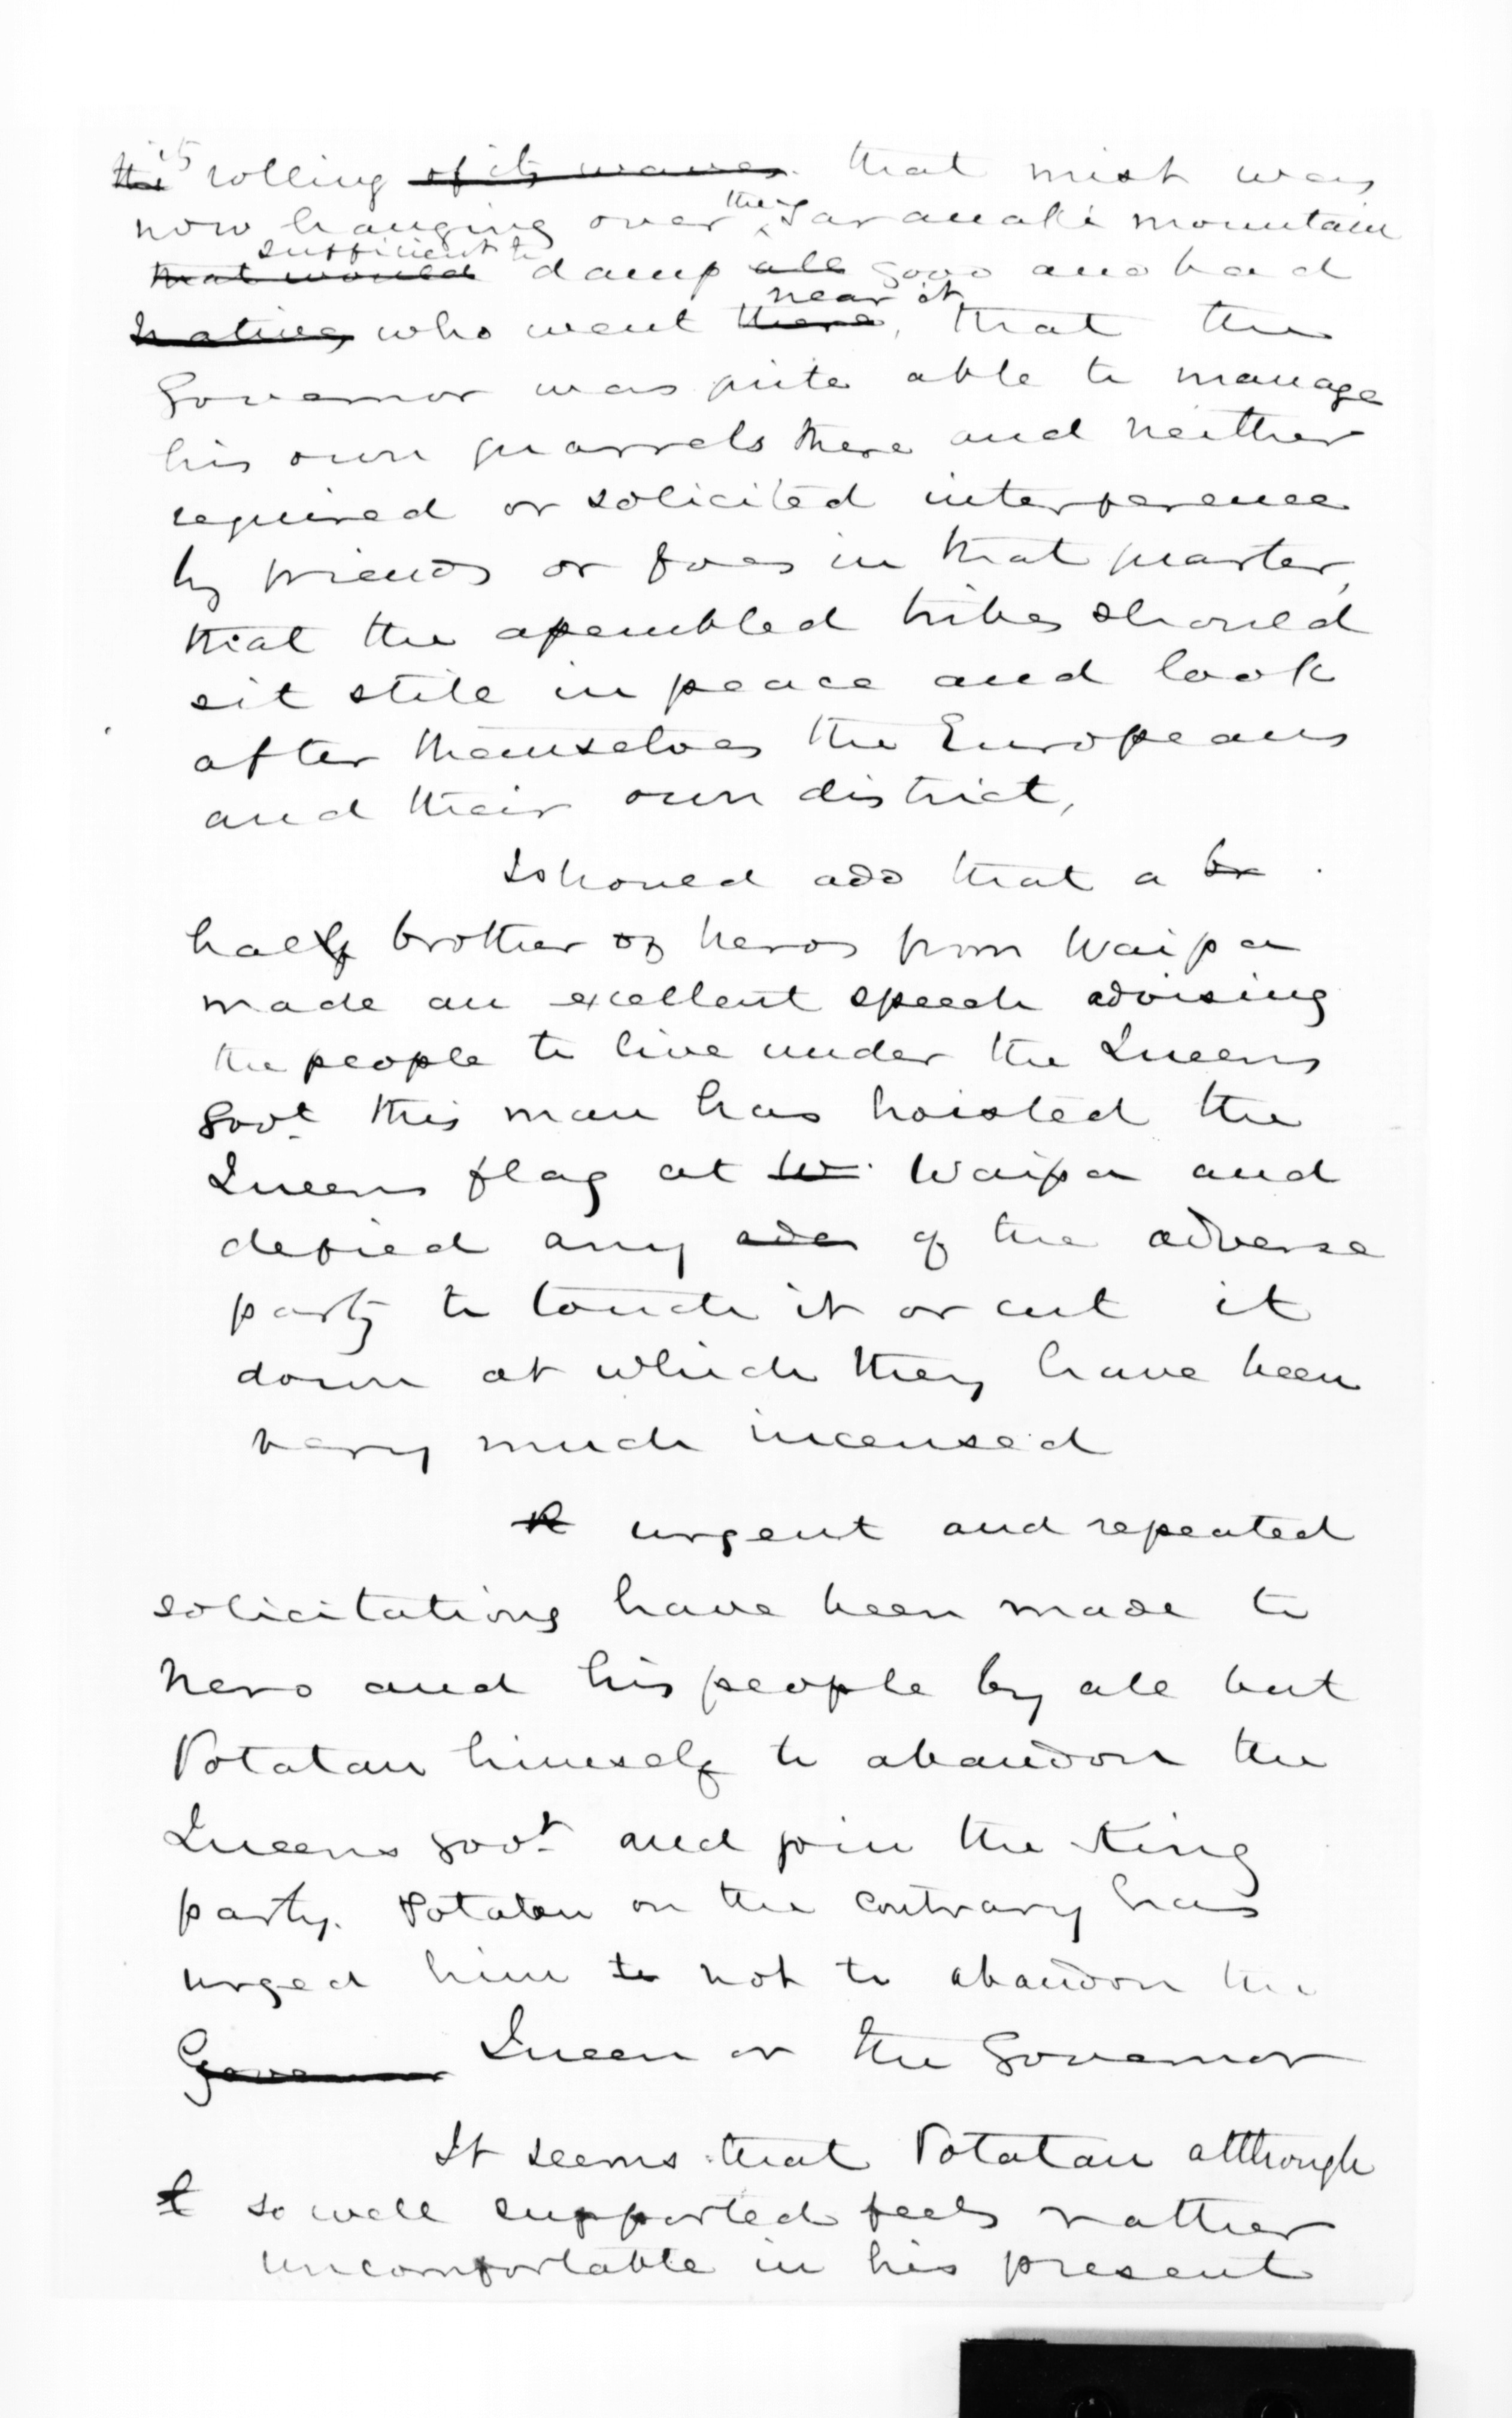 its rolling of its waves that mist was
now hanging over the Taranaki mountain
that would sufficient to damp all good and bad
natives who went there near it, that the
Governor was quite able to manage
his own quarrels there and neither
required or solicited interference
by friends or foes in that quarter,
that the assembled tribes should
sit still in peace and look
after themselves the Europeans
and their own district,
I should add that a br
half brother of Neros from Waipa
made an excellent speech advising
the people to live under the Queens
Govt this man has hoisted the
Queens flag at W Waipa and
defied any adve of the adverse
party to touch it or cut it
down at which they have been
very much incensed
R urgent and repeated
solicitations have been made to
Nero and his people by all but
Potatau himself to abandon the
Queens Govt and join the King
party. Potatau on the contrary has
urged him to not to abandon the
Governor Queen or the Governor
It seems that Potatau although
t so well supported feels rather
uncomfortable in his present